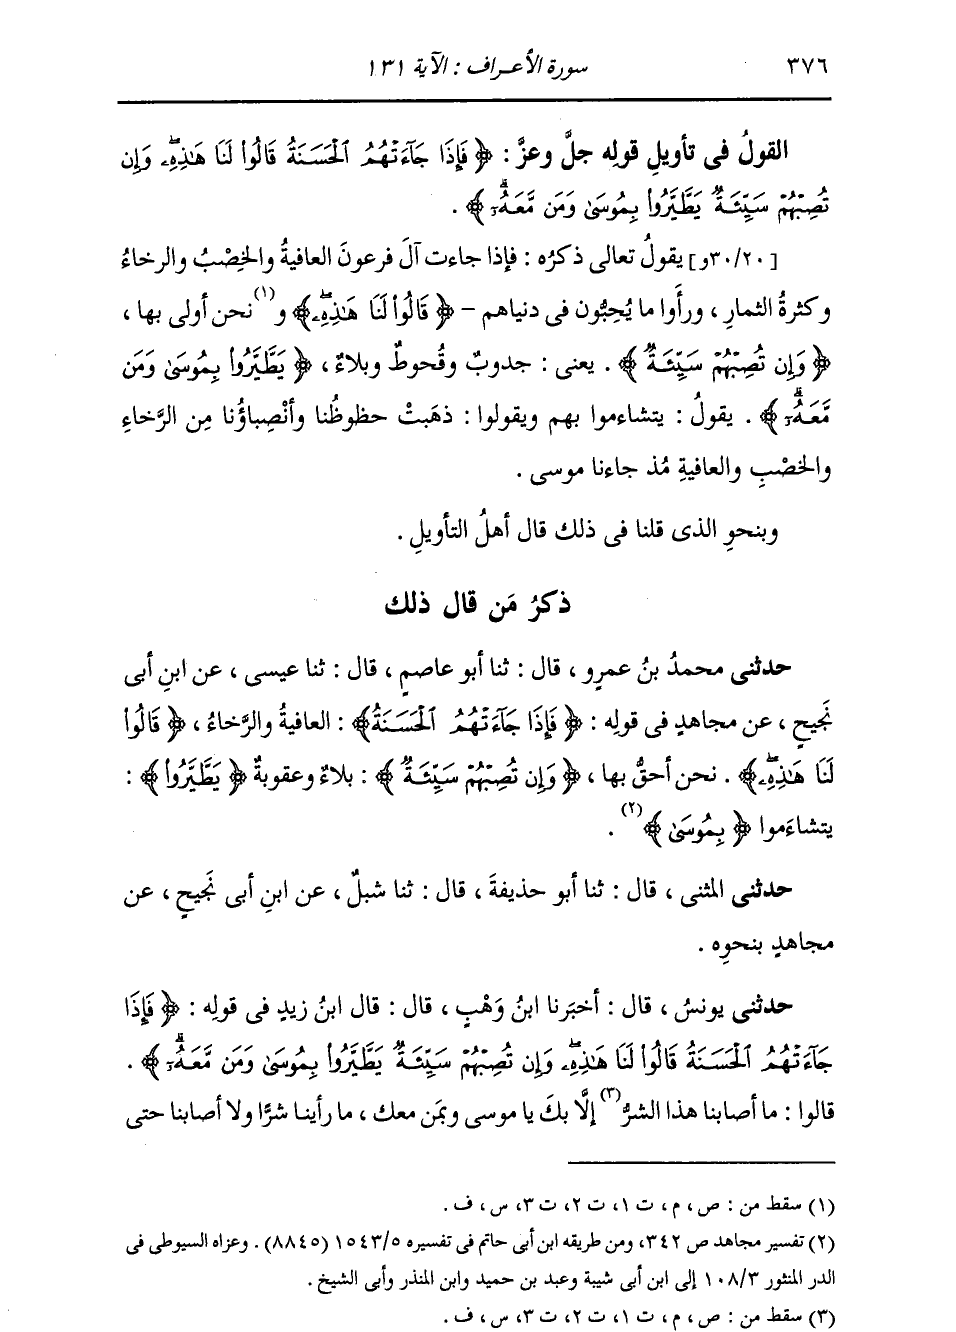 ٣٧٦ سورة الأعراف : الآية ١٣١
القولُ فى تأويلِ قولِه جلَّ وعزَّ : ﴿ فَإِذَا جَآءَتْهُمُ ٱلْحَسَنَةُ قَالُوا۟ لَنَا هَـٰذِهِۦۖ وَإِن
تُصِبْهُمْ سَيِّئَةٌ يَطَّيَّرُوا۟ بِمُوسَىٰ وَمَن مَّعَهُۥٓۗ ﴾ .
[٣٠/٢٠و] يقولُ تعالى ذكرُه : فإذا جاءت آلَ فرعونَ العافيةُ والخِصْبُ والرخاءُ
وكثرةُ الثمارِ ، ورأَوا ما يُحِبُّون فى دنياهم – ﴿ قَالُوا۟ لَنَا هَـٰذِهِۦۖ﴾ و(١)نحن أولى بها ،
﴿ وَإِن تُصِبْهُمْ سَيِّئَةٌ ﴾ . يعنى : جدوبٌ وقُحوطٌ وبلاءٌ ، ﴿ يَطَّيَّرُوا۟ بِمُوسَىٰ وَمَن
مَّعَهُۥٓۗ ﴾ . يقولُ : يتشاءموا بهم ويقولوا : ذهَبتْ حظوظُنا وأنْصِباؤُنا مِن الرَّخاءِ
والخصْبِ والعافيةِ مُذ جاءنا موسى .
وبنحوِ الذى قلنا فى ذلك قال أهلُ التأويلِ .
ذكرُ مَن قال ذلك
حدثنى محمدُ بنُ عمرٍو ، قال : ثنا أبو عاصمٍ ، قال : ثنا عيسى ، عن ابنِ أبى
نَجيحٍ ، عن مجاهدٍ فى قولِه : ﴿ فَإِذَا جَآءَتْهُمُ ٱلْحَسَنَةُ﴾ : العافيةُ والرَّخاءُ ، ﴿ قَالُوا۟
لَنَا هَـٰذِهِۦۖ﴾ . نحن أحقُّ بها ، ﴿ وَإِن تُصِبْهُمْ سَيِّئَةٌ ﴾ : بلاءٌ وعقوبةٌ ﴿ يَطَّيَّرُوا۟ ﴾ :
يتشاءَموا ﴿ بِمُوسَىٰ ﴾(٢) .
حدثنى المثنى ، قال : ثنا أبو حذيفةَ ، قال : ثنا شبلٌ ، عن ابنِ أبى نَجيحٍ ، عن
مجاهدٍ بنحوِه .
حدثنى يونسُ ، قال : أخبَرنا ابنُ وَهْبٍ ، قال : قال ابنُ زيدٍ فى قولِه : ﴿ فَإِذَا
جَآءَتْهُمُ ٱلْحَسَنَةُ قَالُوا۟ لَنَا هَـٰذِهِۦۖ وَإِن تُصِبْهُمْ سَيِّئَةٌ يَطَّيَّرُوا۟ بِمُوسَىٰ وَمَن مَّعَهُۥٓۗ ﴾ .
قالوا : ما أصابنا هذا الشرُّ(٣) إلَّا بكَ يا موسى وبمَن معك ، ما رأينا شرًّا ولا أصابنا حتى
(١) سقط من : ص ، م ، ت ١، ت ٢، ت ٣، س ، ف .
(٢) تفسير مجاهد ص ٣٤٢، ومن طريقه ابن أبى حاتم فى تفسيره ١٥٤٣/٥ (٨٨٤٥) . وعزاه السيوطى فى
الدر المنثور ١٠٨/٣ إلى ابن أبى شيبة وعبد بن حميد وابن المنذر وأبى الشيخ .
(٣) سقط من : ص ، م ، ت ١، ت ٢، ت ٣، س ، ف .